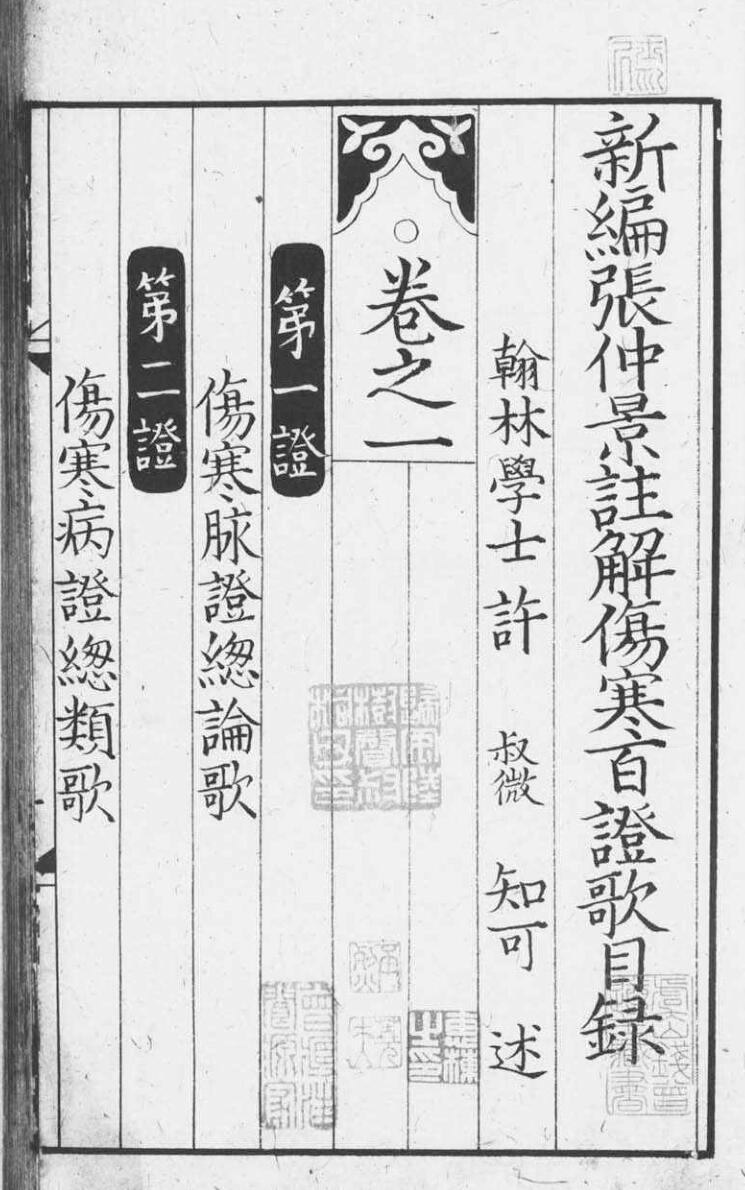 新編張仲景註解傷寒百證歌目録
翰林學士許 叔微 知可 述
卷之一
第一證
傷寒脉證緫論歌
第二證
傷寒病證緫類歌